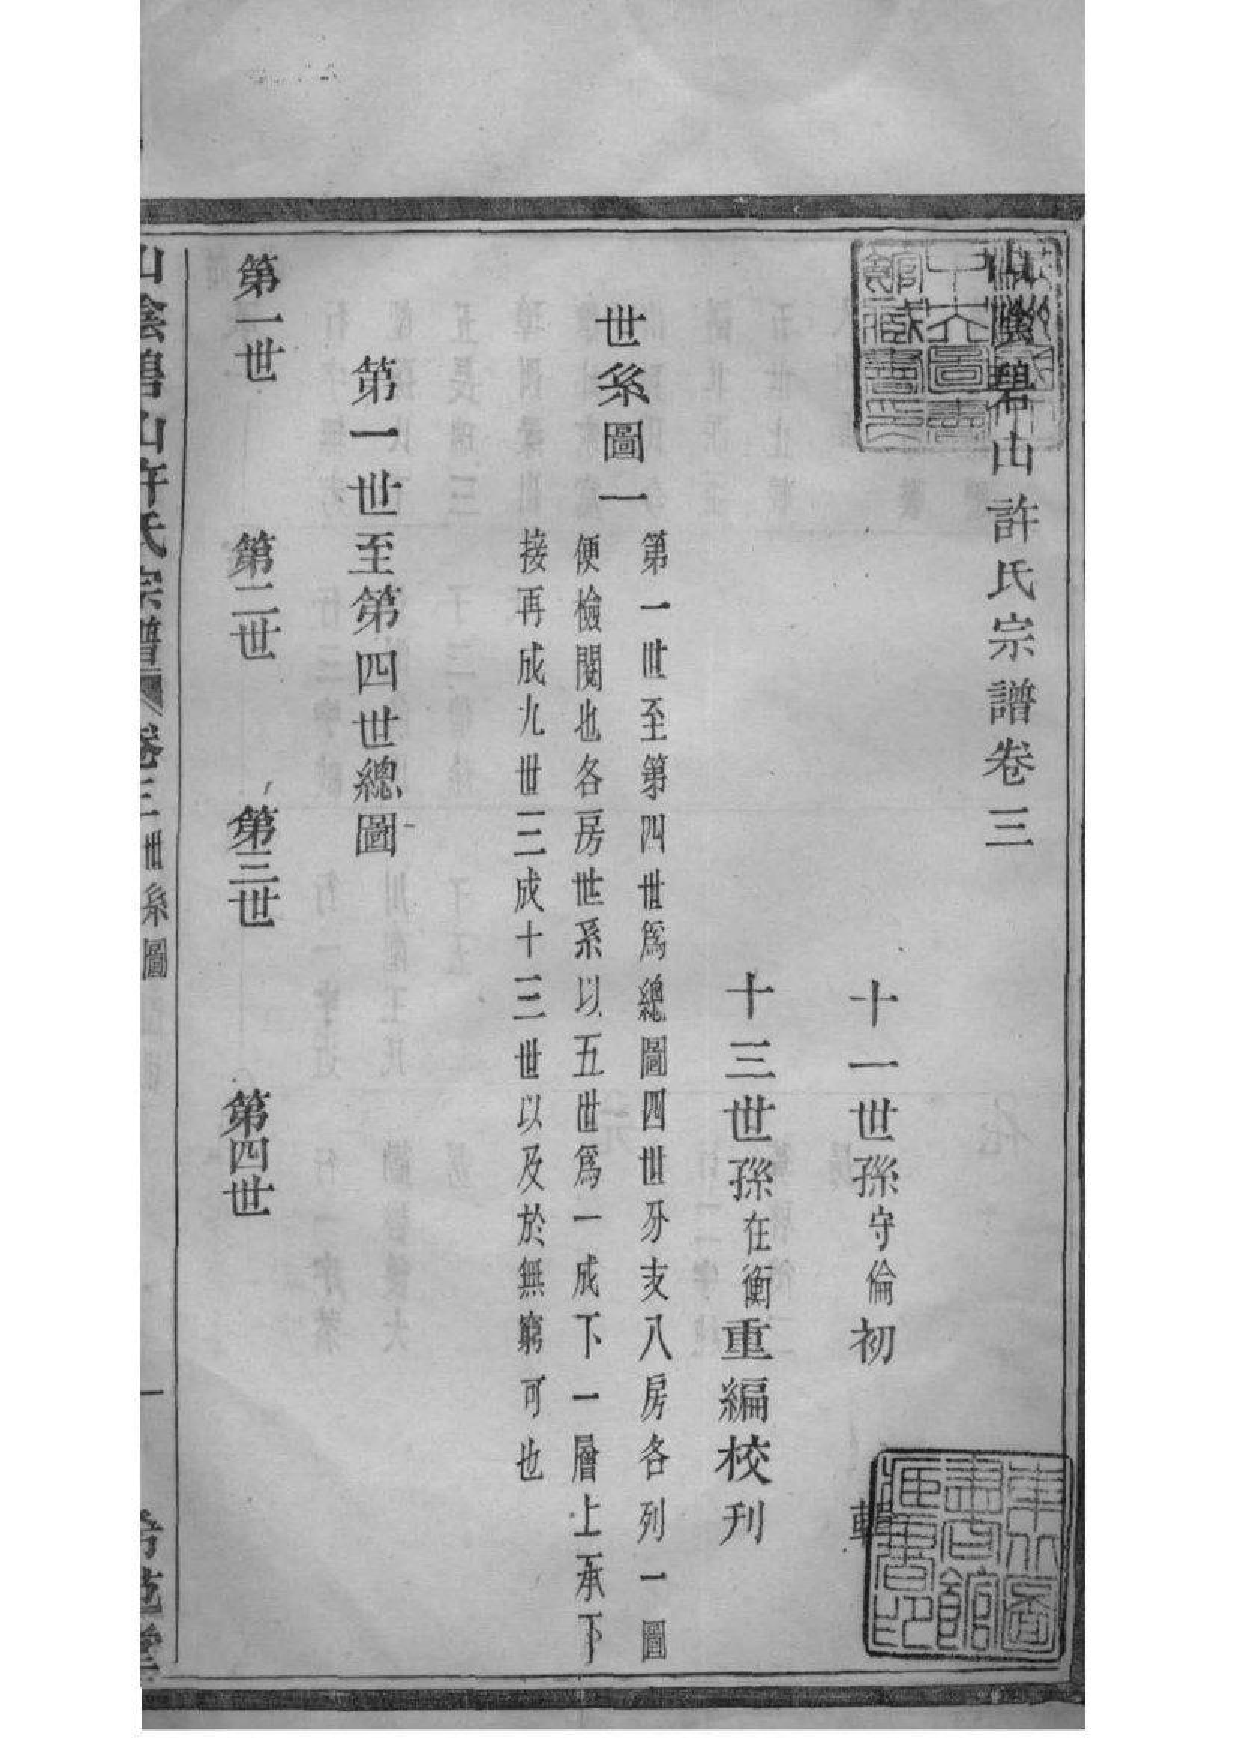 山陰碧山許氏宗譜卷三
十一世孫守倫初輯
十三世孫在衡重編校刊
世系圖一
第一世至第四世爲總圖四世分支八房各列一圖
便檢閱也各房世系以五世爲一成下一層上承下
接再成九世三成十三世以及於無窮可也
第一世至第四世總圖
第一世
第二世
第三世
第四世
山陰碧山許氏宗譜
卷三
世系圖
一